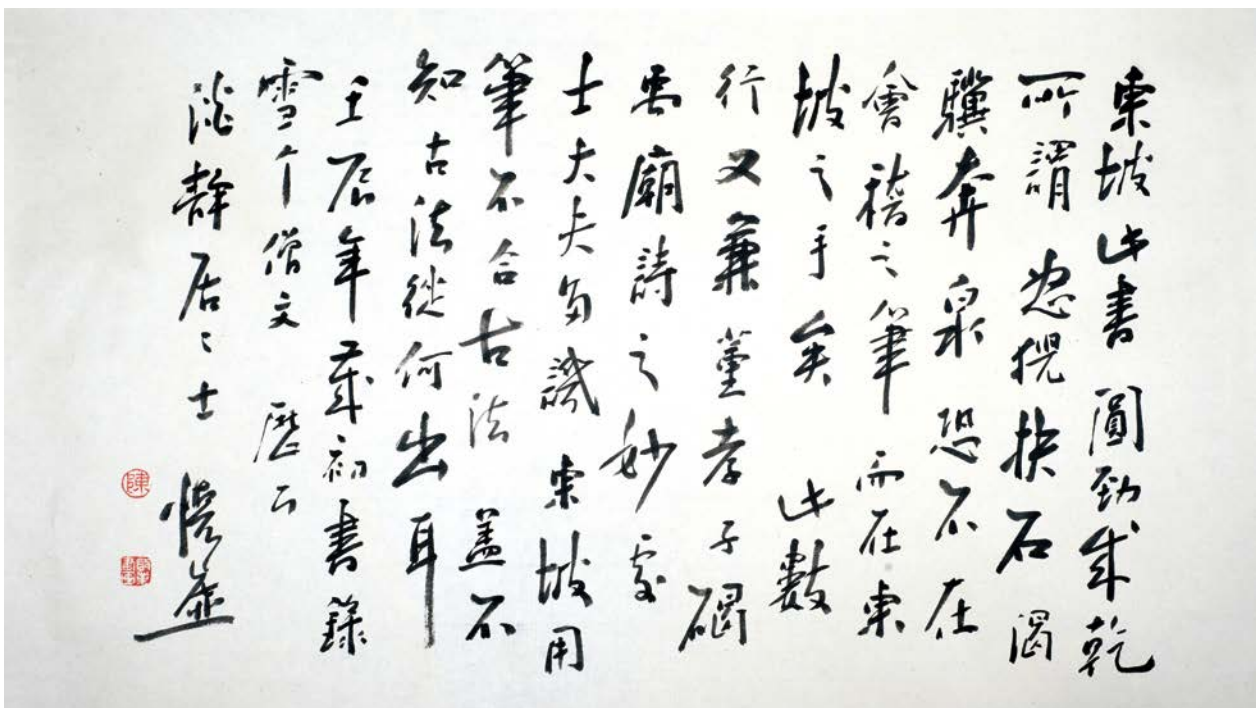 東坡此書圓勁成就
所謂怒猊抉石渴
驥奔泉恐不在
會稽之筆而在東
坡之手矣此數
行又兼董孝子碣
禹廟詩之妙處
士大夫多譏東坡用
筆不合古法蓋不
知古法從何出耳
壬辰年歲初書錄
雪个僧文 歷下
淡靜居〻士
陳